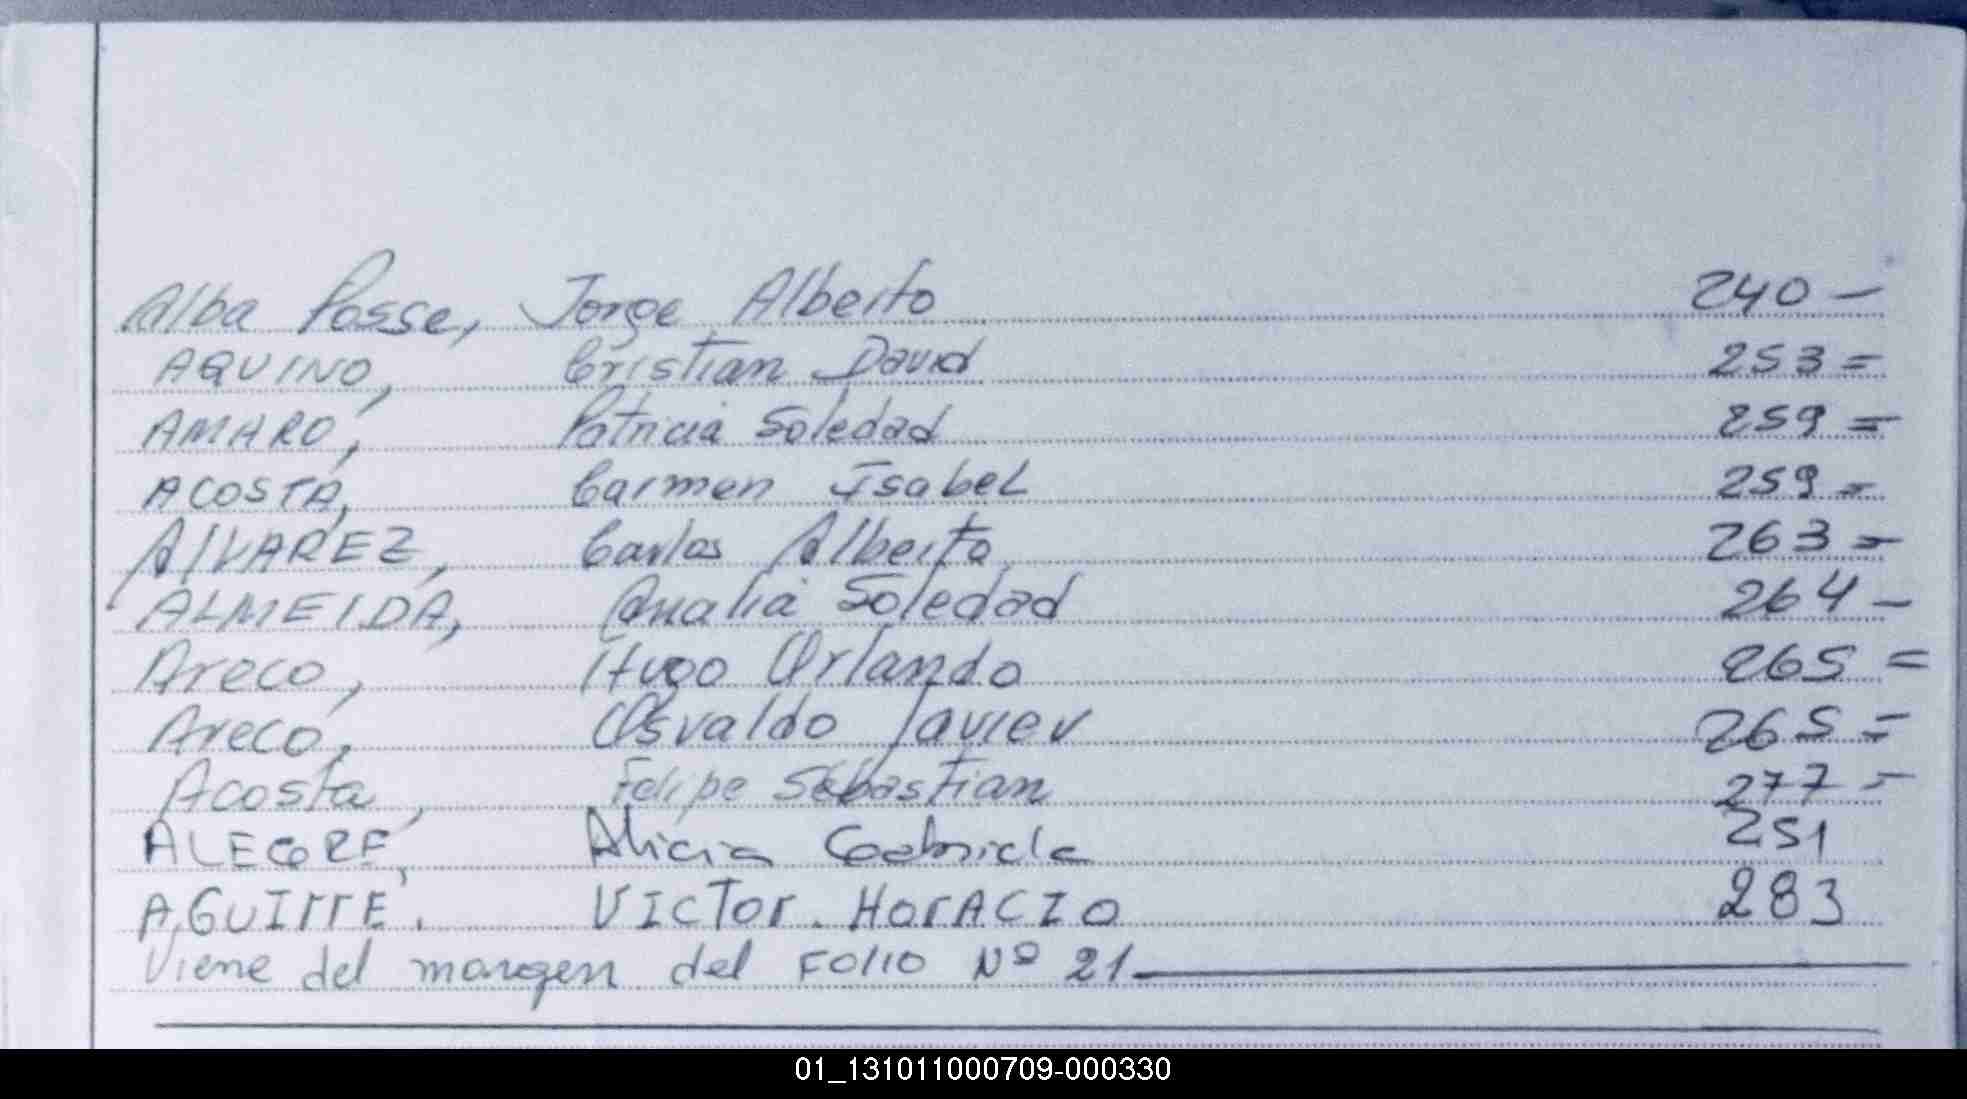 Alba Posse, Jorge Alberto 240 -
AQUINO, Cristian David 253 =
AMARO, Patricia Soledad 259 =
ACOSTA, Carmen Isabel 259 =
ALVAREZ, Carlos Alberto 263 =
ALMEIDA, Analia Soledad 264 -
Areco, Hugo Orlando 265 =
Areco, Osvaldo Javier 265 =
Acosta, Felipe Sebastian 277 -
ALEGRE, Alicia Gabriela 251
AGUIrrE. VICTor. HorACIO 283
Viene del margen del FOLIO Nº 21
01_131011000709-000330